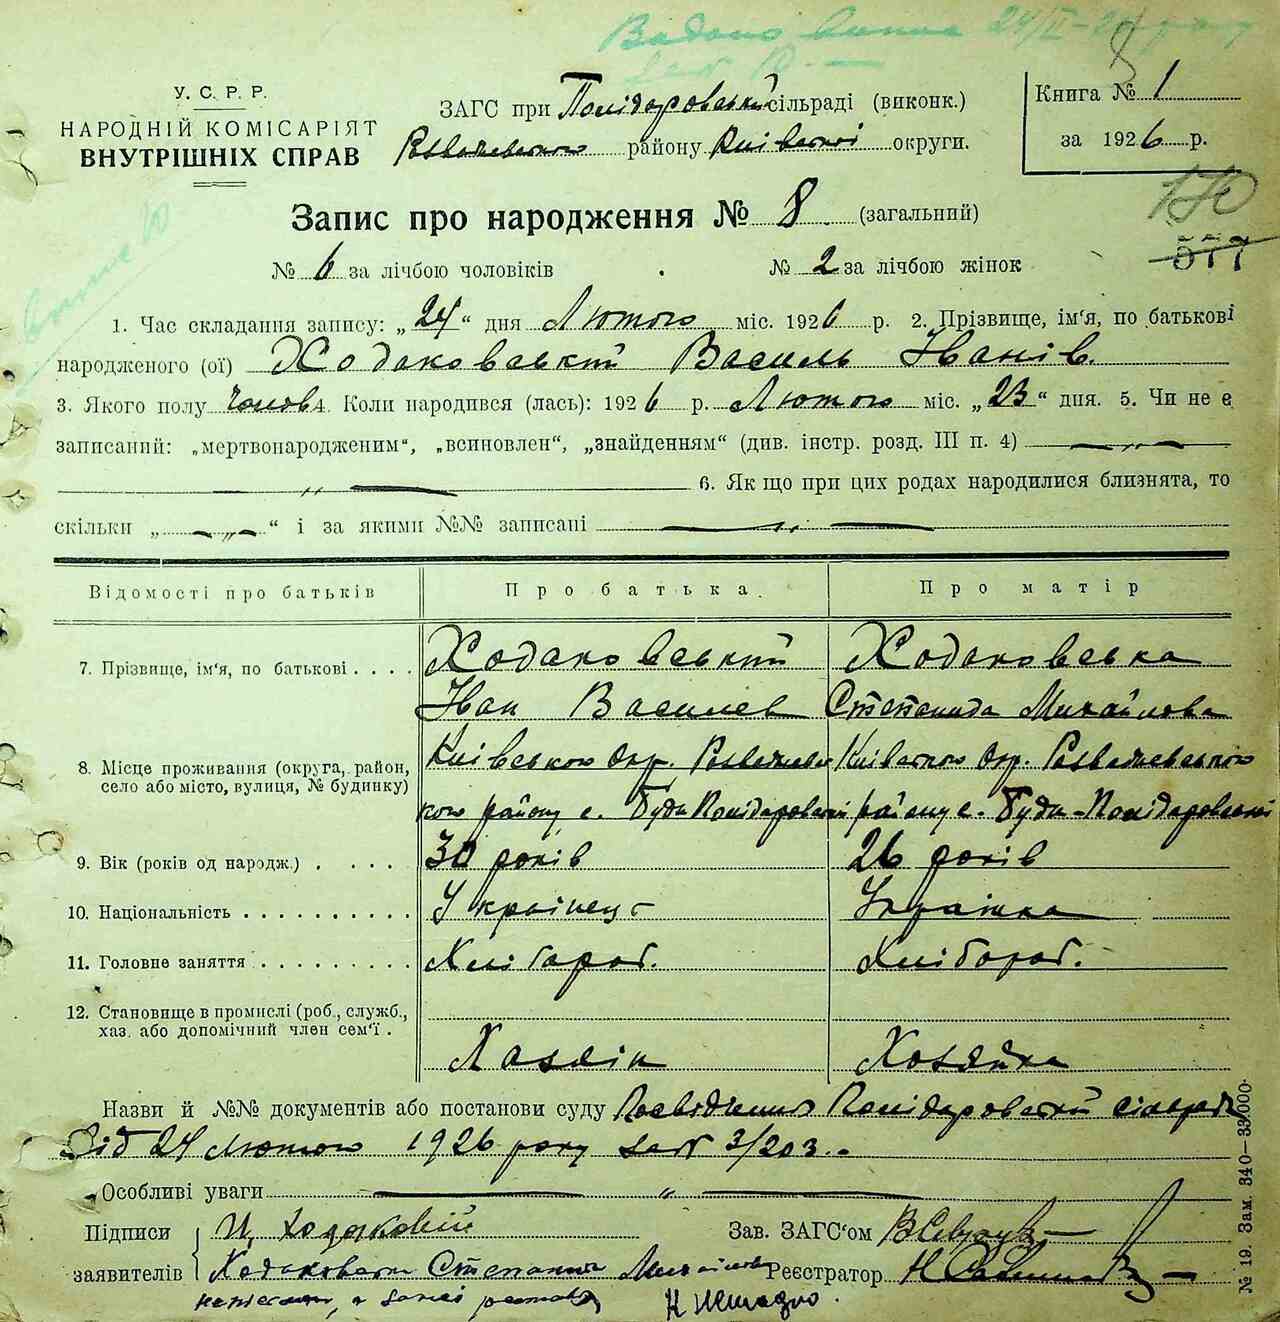 У. С. Р. Р.
НАРОДНІЙ КОМІСАРІЯТ
ВНУТРІШНІХ СПРАВ
ЗАГС при Полідаровській сільраді (виконк.)
Розважевського району Київської округи.
Книга № 1
за 1926 р.
170
577
Запис про народження № 8 (загальний)
№ 6 за лічбою чоловіків № 2 за лічбою жінок
1. Час складання запису: „24“ дня Лютого міс. 1926 р. 2. Прізвище, ім'я, по батькові
народженого (ої) Ходаковський Василь Іванів.
3. Якого полу Чолов. 4. Коли народився (лась): 1926 р. Лютого міс. „23“ дня. 5. Чи не є
записаний: „мертвонародженим“, „всиновлен“, „знайденням“ (див. інстр. розд. III п. 4) — „ —
— „ — 6. Як що при цих родах народилися близнята, то
скільки „— „ —“ і за якими №№ записані — „ —
Відомості про батьків Про батька. Про матір
7. Прізвище, ім'я, по батькові . . . . Ходаковський Ходаковська
Іван Василев Степанида Михайлова
8. Місце проживання (округа, район, село або місто, вулиця, № будинку) Київського окр. Розважевс Київського окр. Розважевського
кого району с. Буди Полідаровскі району с. Буди-Полідаровські
9. Вік (років од народж.) . . . . . 30 років 26 років
10. Національність . . . . . . . . . . Українець Українка
11. Головне заняття . . . . . . . . . Хлібороб. Хлібороб.
12. Становище в промислі (роб., служб.,
хаз. або допомічний член сем'ї . Хазяін Хозяйка
Назви й №№ документів або постанови суду Посвідчення Полідаровської сільради
Від 24 Лютого 1926 року за № 3/203.
Особливі уваги — „ —
Підписи И, Ходаковсій Зав. ЗАГС'ом
заявителів Ходаковська Степанида Михайлова Реєстратор
неписменна, а за неі
№ 19. Зам. 340—33.000.